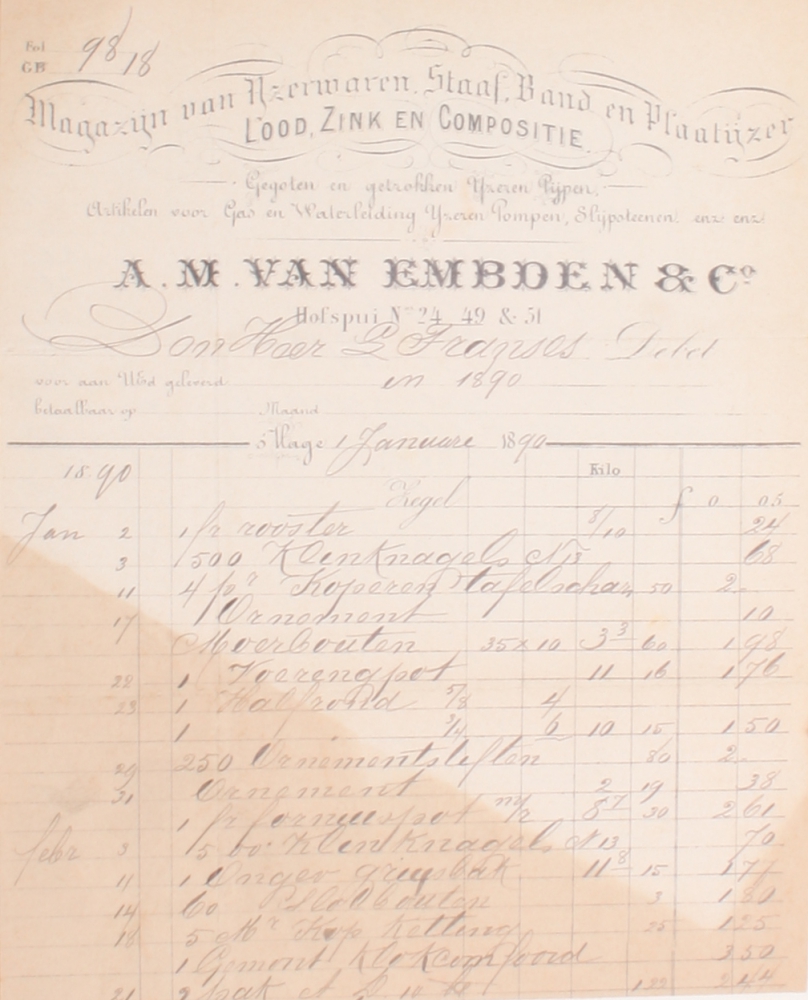 Fol 98/18
GB
Magazijn van IJzerwaren, Staaf, Band en Plaatijzer
LOOD, ZINK EN COMPOSITIE.
Gegoten en getrokken IJzeren Pijpen,
Artikelen voor Gas en Waterleiding IJzeren Pompen, Slijpsteenen. enz. enz.
A. M. VAN EMBDEN & Co
Hofspui No 24 49 & 51
Den Heer Franses Debet
voor aan UEd geleverd in 1890
betaalbaar op Maand
s Hage 1 Januarie 1890
1890 Kilo
Zegel f 0 05
Jan 2 1 fr rooster 8/10 24
3 1500 Klenknagels N 13 68
11 4 pr Koperen tafelschar 50 2-
17 1 Ornement 10
Moerbouten 35x10 3 3 60 1 98
22 1 Voerengpot 11 16 1 76
23 1 Halfrond 5/8 4
1 3/4 6 10 15 1 50
29 250 Ornementstiften 80 2-
31 Ornement 2 19 38
1 fr fornuispot 8 7 30 2 61
febr 3 500 Klenknagels N 13 70
11 1 Ongev 11 8 15 1 77
14 60 Slotbouten 3 1 80
18 5 Mr Kop Ketting 25 1 25
1 Gemont Klokcomfoord 3 50
21 2 pak 1 22 2 44